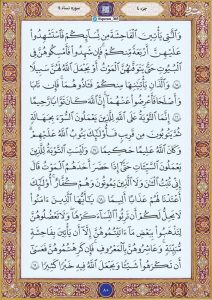 جزء ٤
سوره نساء ٤
وَٱلَّٰتِي يَأۡتِينَ ٱلۡفَٰحِشَةَ مِن نِّسَآئِكُمۡ فَٱسۡتَشۡهِدُواْ
عَلَيۡهِنَّ أَرۡبَعَةٗ مِّنكُمۡۖ فَإِن شَهِدُواْ فَأَمۡسِكُوهُنَّ فِي
ٱلۡبُيُوتِ حَتَّىٰ يَتَوَفَّىٰهُنَّ ٱلۡمَوۡتُ أَوۡ يَجۡعَلَ ٱللَّهُ لَهُنَّ سَبِيلٗا
١٥ وَٱلَّذَانِ يَأۡتِيَٰنِهَا مِنكُمۡ فَـَٔاذُوهُمَاۖ فَإِن تَابَا
وَأَصۡلَحَا فَأَعۡرِضُواْ عَنۡهُمَآۗ إِنَّ ٱللَّهَ كَانَ تَوَّابٗا رَّحِيمًا
١٦ إِنَّمَا ٱلتَّوۡبَةُ عَلَى ٱللَّهِ لِلَّذِينَ يَعۡمَلُونَ ٱلسُّوٓءَ بِجَهَٰلَةٖ
ثُمَّ يَتُوبُونَ مِن قَرِيبٖ فَأُوْلَٰٓئِكَ يَتُوبُ ٱللَّهُ عَلَيۡهِمۡۗ
وَكَانَ ٱللَّهُ عَلِيمًا حَكِيمٗا ١٧ وَلَيۡسَتِ ٱلتَّوۡبَةُ لِلَّذِينَ
يَعۡمَلُونَ ٱلسَّيِّـَٔاتِ حَتَّىٰٓ إِذَا حَضَرَ أَحَدَهُمُ ٱلۡمَوۡتُ قَالَ
إِنِّي تُبۡتُ ٱلۡـَٰٔنَ وَلَا ٱلَّذِينَ يَمُوتُونَ وَهُمۡ كُفَّارٌۚ أُوْلَٰٓئِكَ
أَعۡتَدۡنَا لَهُمۡ عَذَابًا أَلِيمٗا ١٨ يَٰٓأَيُّهَا ٱلَّذِينَ ءَامَنُواْ
لَا يَحِلُّ لَكُمۡ أَن تَرِثُواْ ٱلنِّسَآءَ كَرۡهٗاۖ وَلَا تَعۡضُلُوهُنَّ
لِتَذۡهَبُواْ بِبَعۡضِ مَآ ءَاتَيۡتُمُوهُنَّ إِلَّآ أَن يَأۡتِينَ بِفَٰحِشَةٖ
مُّبَيِّنَةٖۚ وَعَاشِرُوهُنَّ بِٱلۡمَعۡرُوفِۚ فَإِن كَرِهۡتُمُوهُنَّ فَعَسَىٰٓ
أَن تَكۡرَهُواْ شَيۡـٔٗا وَيَجۡعَلَ ٱللَّهُ فِيهِ خَيۡرٗا كَثِيرٗا ١٩
٨٠